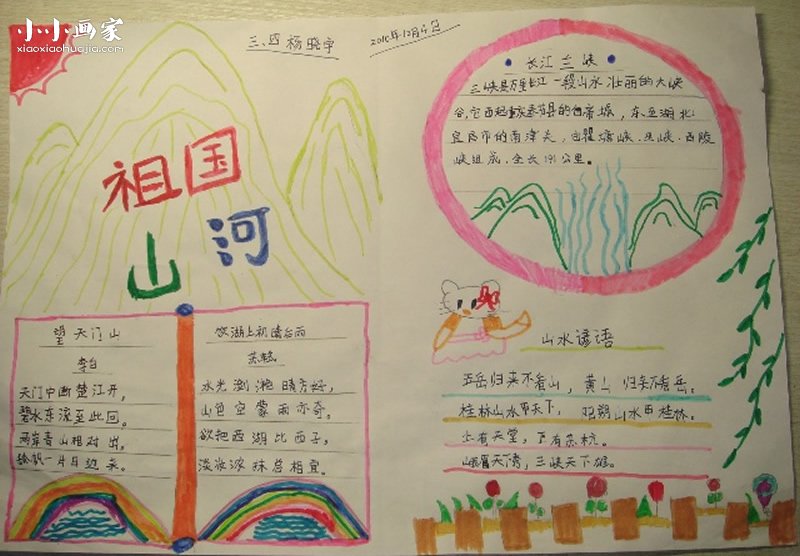 小小画家
xiaoxiaohuajia.com
三.四 杨晓宇
2010年12月5日
祖国
山河
望天门山
李白
天门中断楚江开，
碧水东流至此回。
两岸青山相对出，
孤帆一片日边来。
饮湖上初晴后雨
苏轼
水光潋滟晴方好，
山色空蒙雨亦奇。
欲把西湖比西子，
淡妆浓抹总相宜。
长江三峡
三峡是万里长江一段山水壮丽的大峡
谷，它西起重庆奉节县的白帝城，东至湖北
宜昌市的南津关，由瞿塘峡、巫峡、西陵
峡组成，全长191公里。
山水谚语
五岳归来不看山，黄山归来不看岳。
桂林山水甲天下，阳朔山水甲桂林。
上有天堂，下有苏杭。
峨眉天下秀，三峡天下雄。